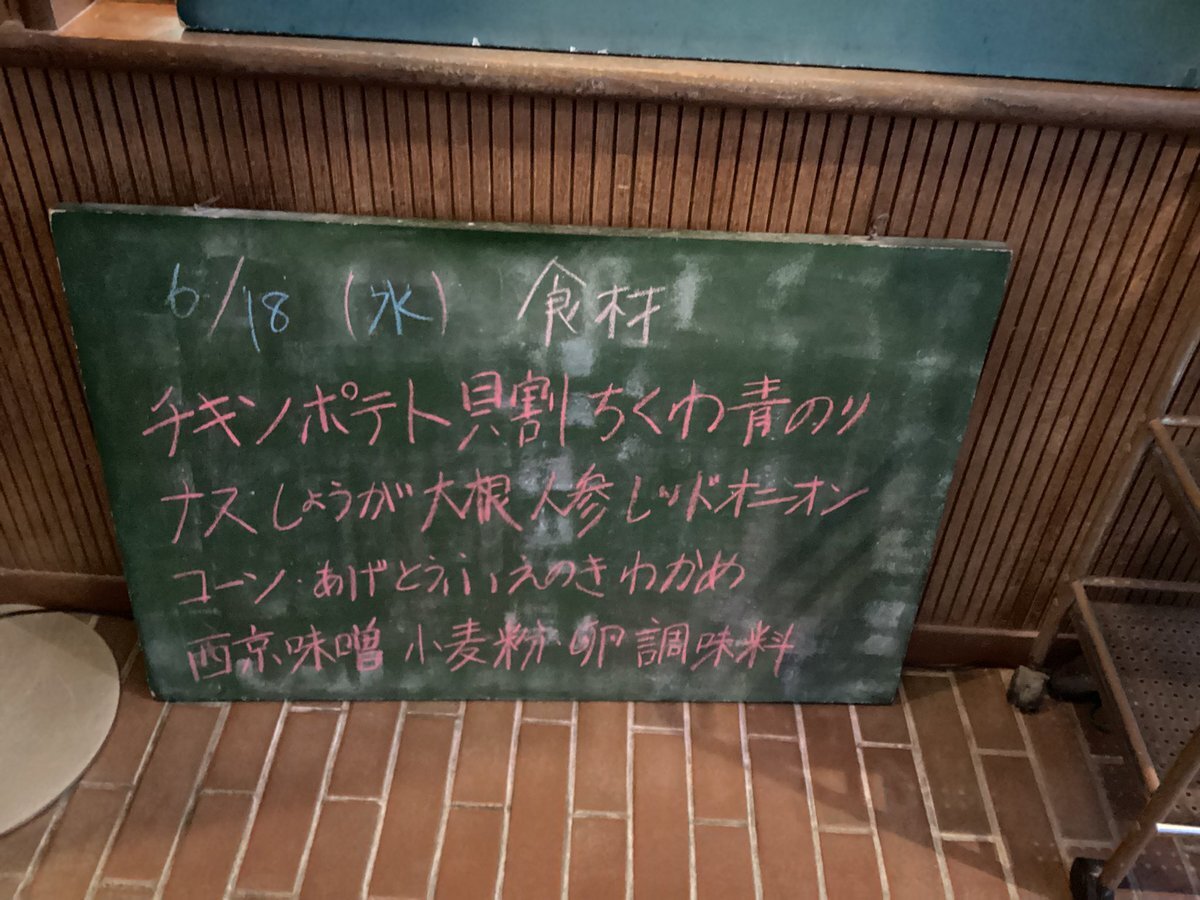 6/18 (水) 食材
チキンポテト貝割ちくわ青のり
ナスしょうが大根人参レッドオニオン
コーン・あげとうふえのきわかめ
西京味噌 小麦粉・卵調味料